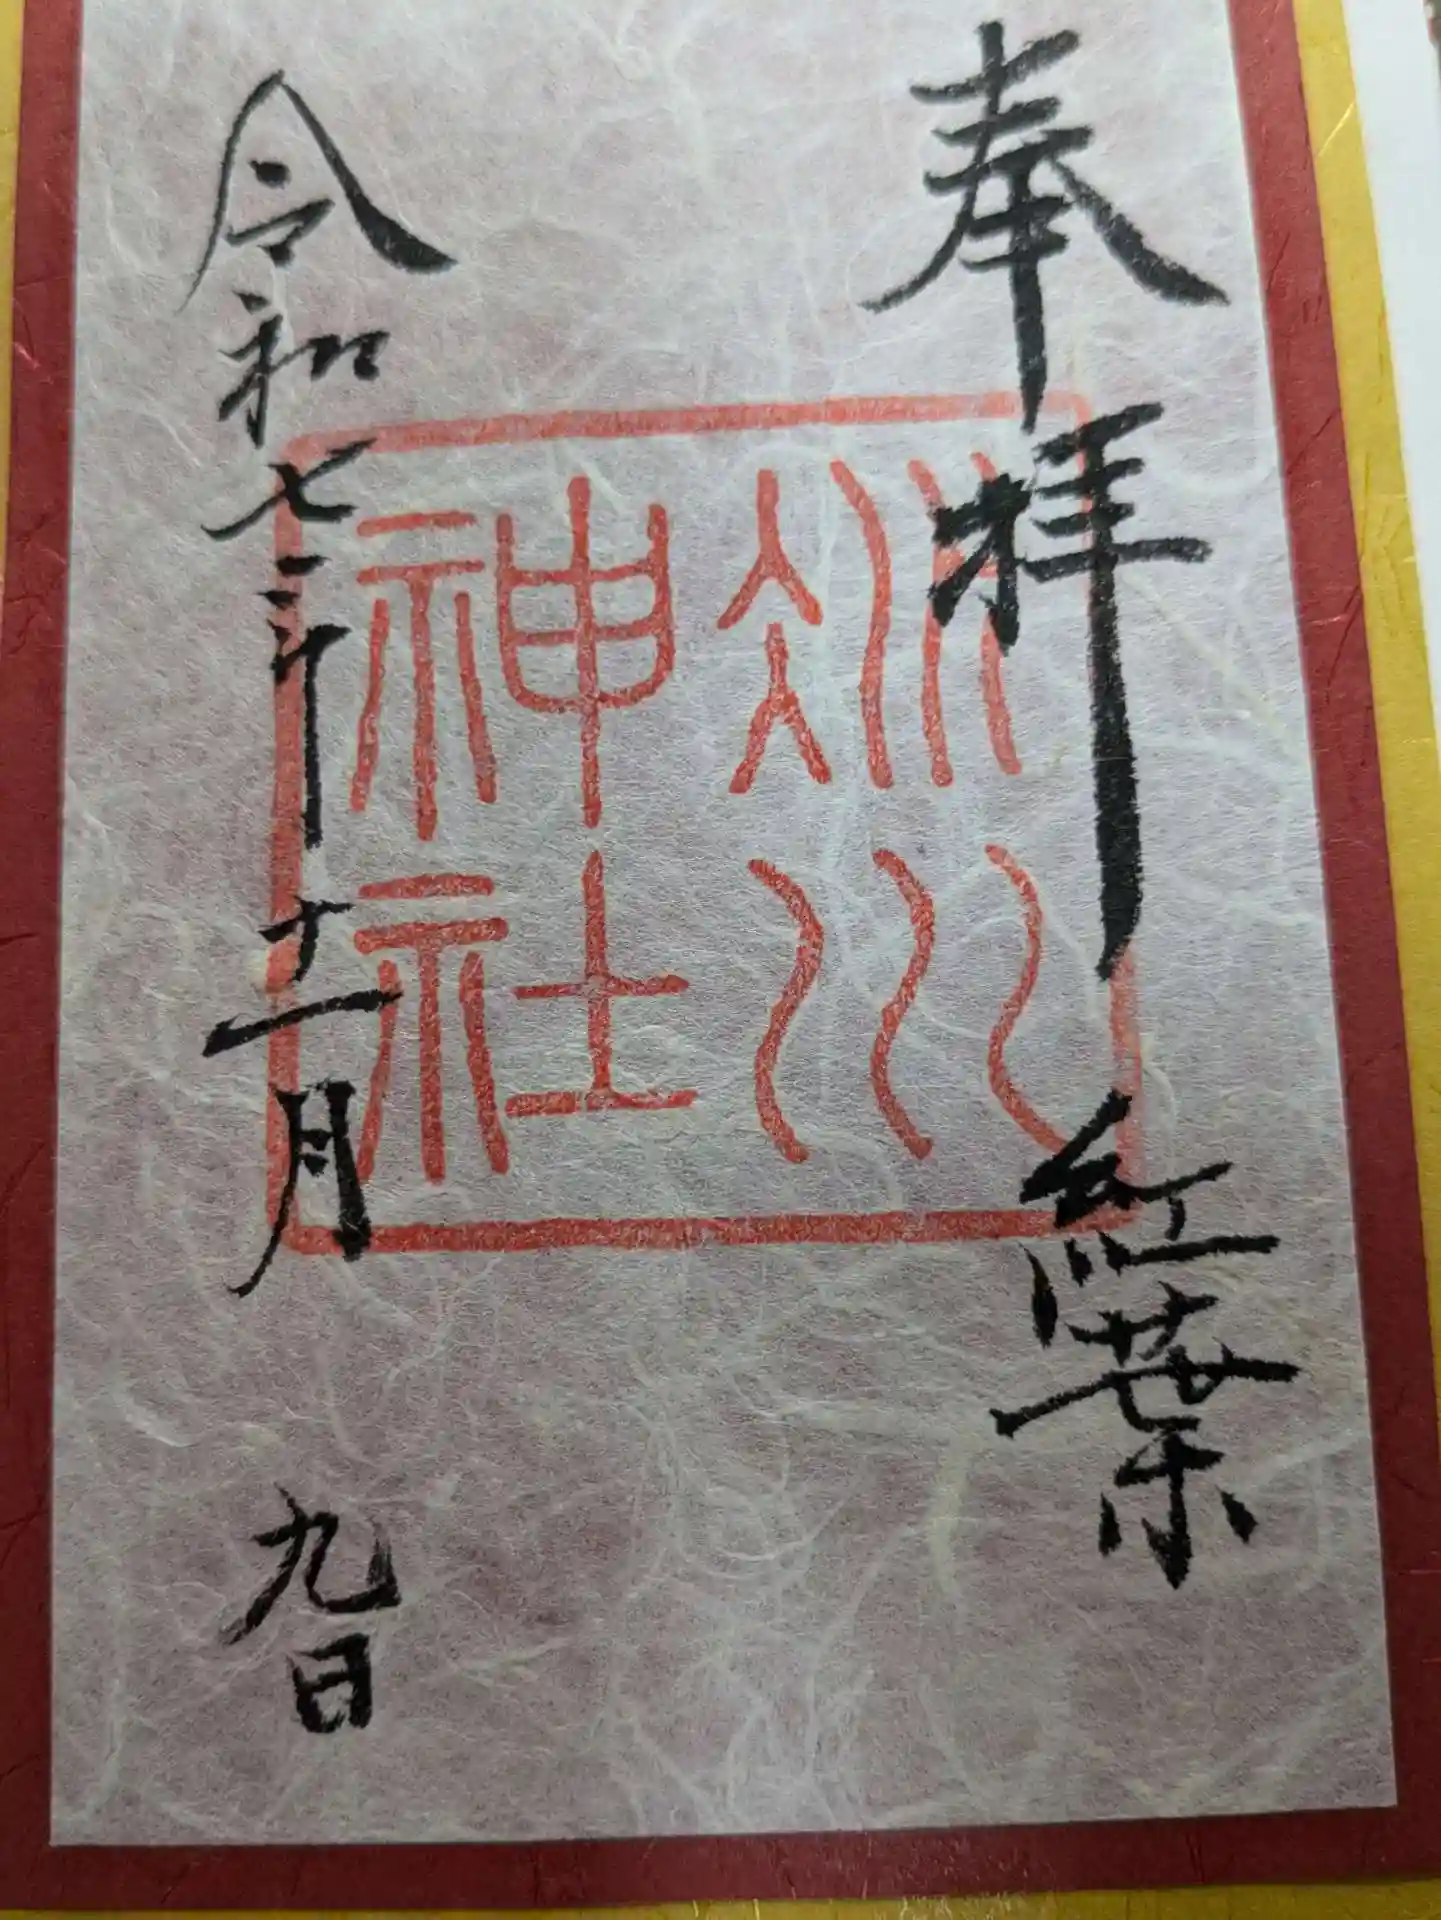 奉拝 紅葉
氷川
神社
令和七年十一月九日